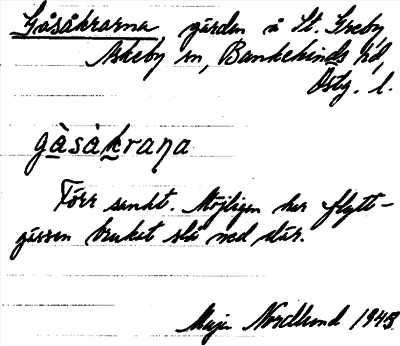 Gåsåkrarna, gärden å St. Greby,
Askeby sn, Bankekinds hd,
Östg. l.
gåsåkraɳa
Förr sankt. Möjligen har flytt-
gässen brukat slå ned där.
Maja Nordlund 1948